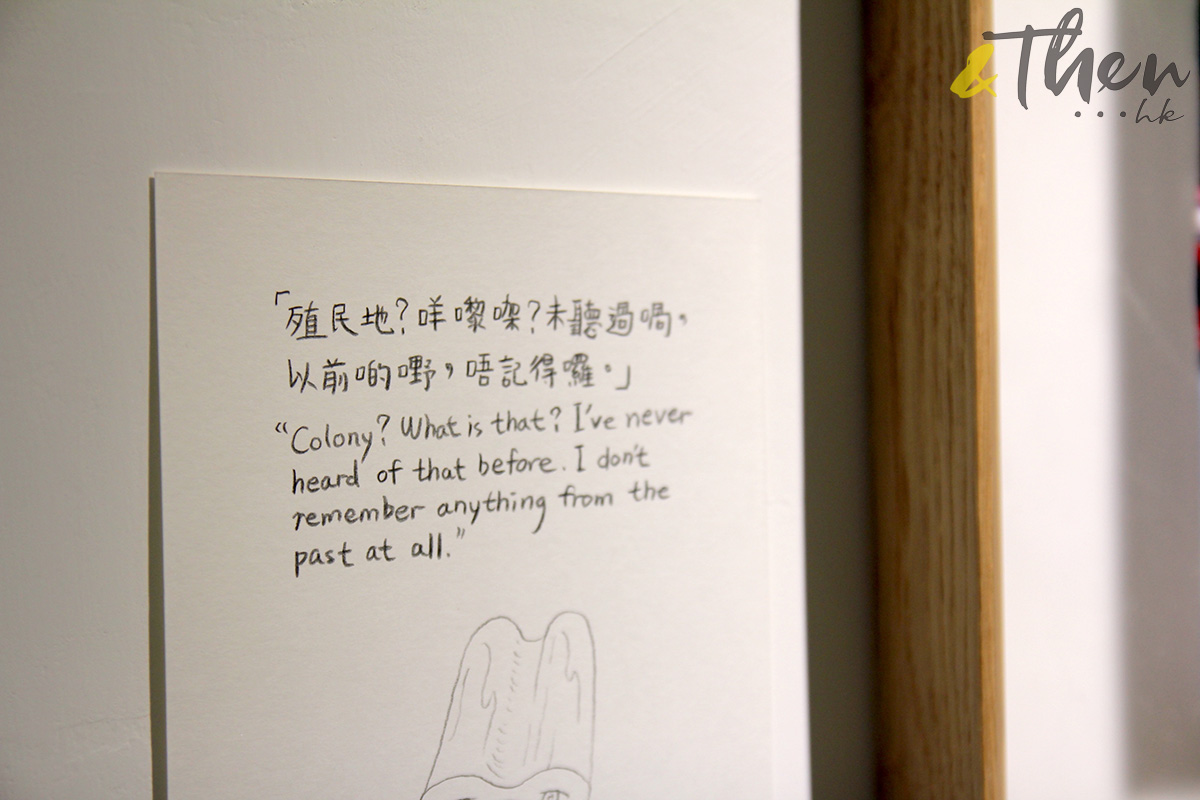 &Then
...hk
「殖民地?咩嚟㗎?未聽過喎，
以前啲嘢，唔記得囉。」
"Colony? What is that? I've never
heard of that before. I don't
remember anything from the
past at all."